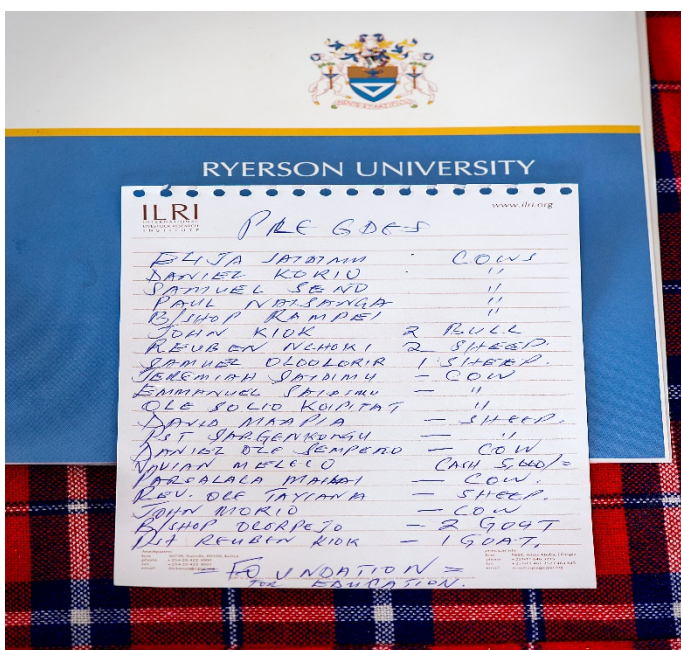 RYERSON UNIVERSITY
ILRI
INTERNATIONAL
LIVESTOCK RESEARCH
INSTITUTE
www.ilri.org
PREGDES
ELIJA SAIDIMU COWS
DANIEL KORIO "
SAMUEL SENO "
PAUL NAISANGA "
B/SHOP RAMPEI "
JOHN KIOK 2 BULL
REUBEN NCHOKI 2 SHEEP.
SAMUEL OLOOLORIR 1 SHEEP.
JEREMIAH SAIDIMU – COW
EMMANUEL SAIDIMU – "
OLE SOLIO KOIPITAT "
DAVID MAAPIA – SHEEP.
PST – "
DANIEL OLE SEMPERO – COW
MELELO CASH
PARSALALA – COW.
REV. OLE TAYIANA – SHEEP.
JOHN MORIO – COW
B/SHOP OLORPEJO – 2 GOAT
PST REUBEN KIOK – 1 GOAT,
= FOUNDATION =
FOR EDUCATION.